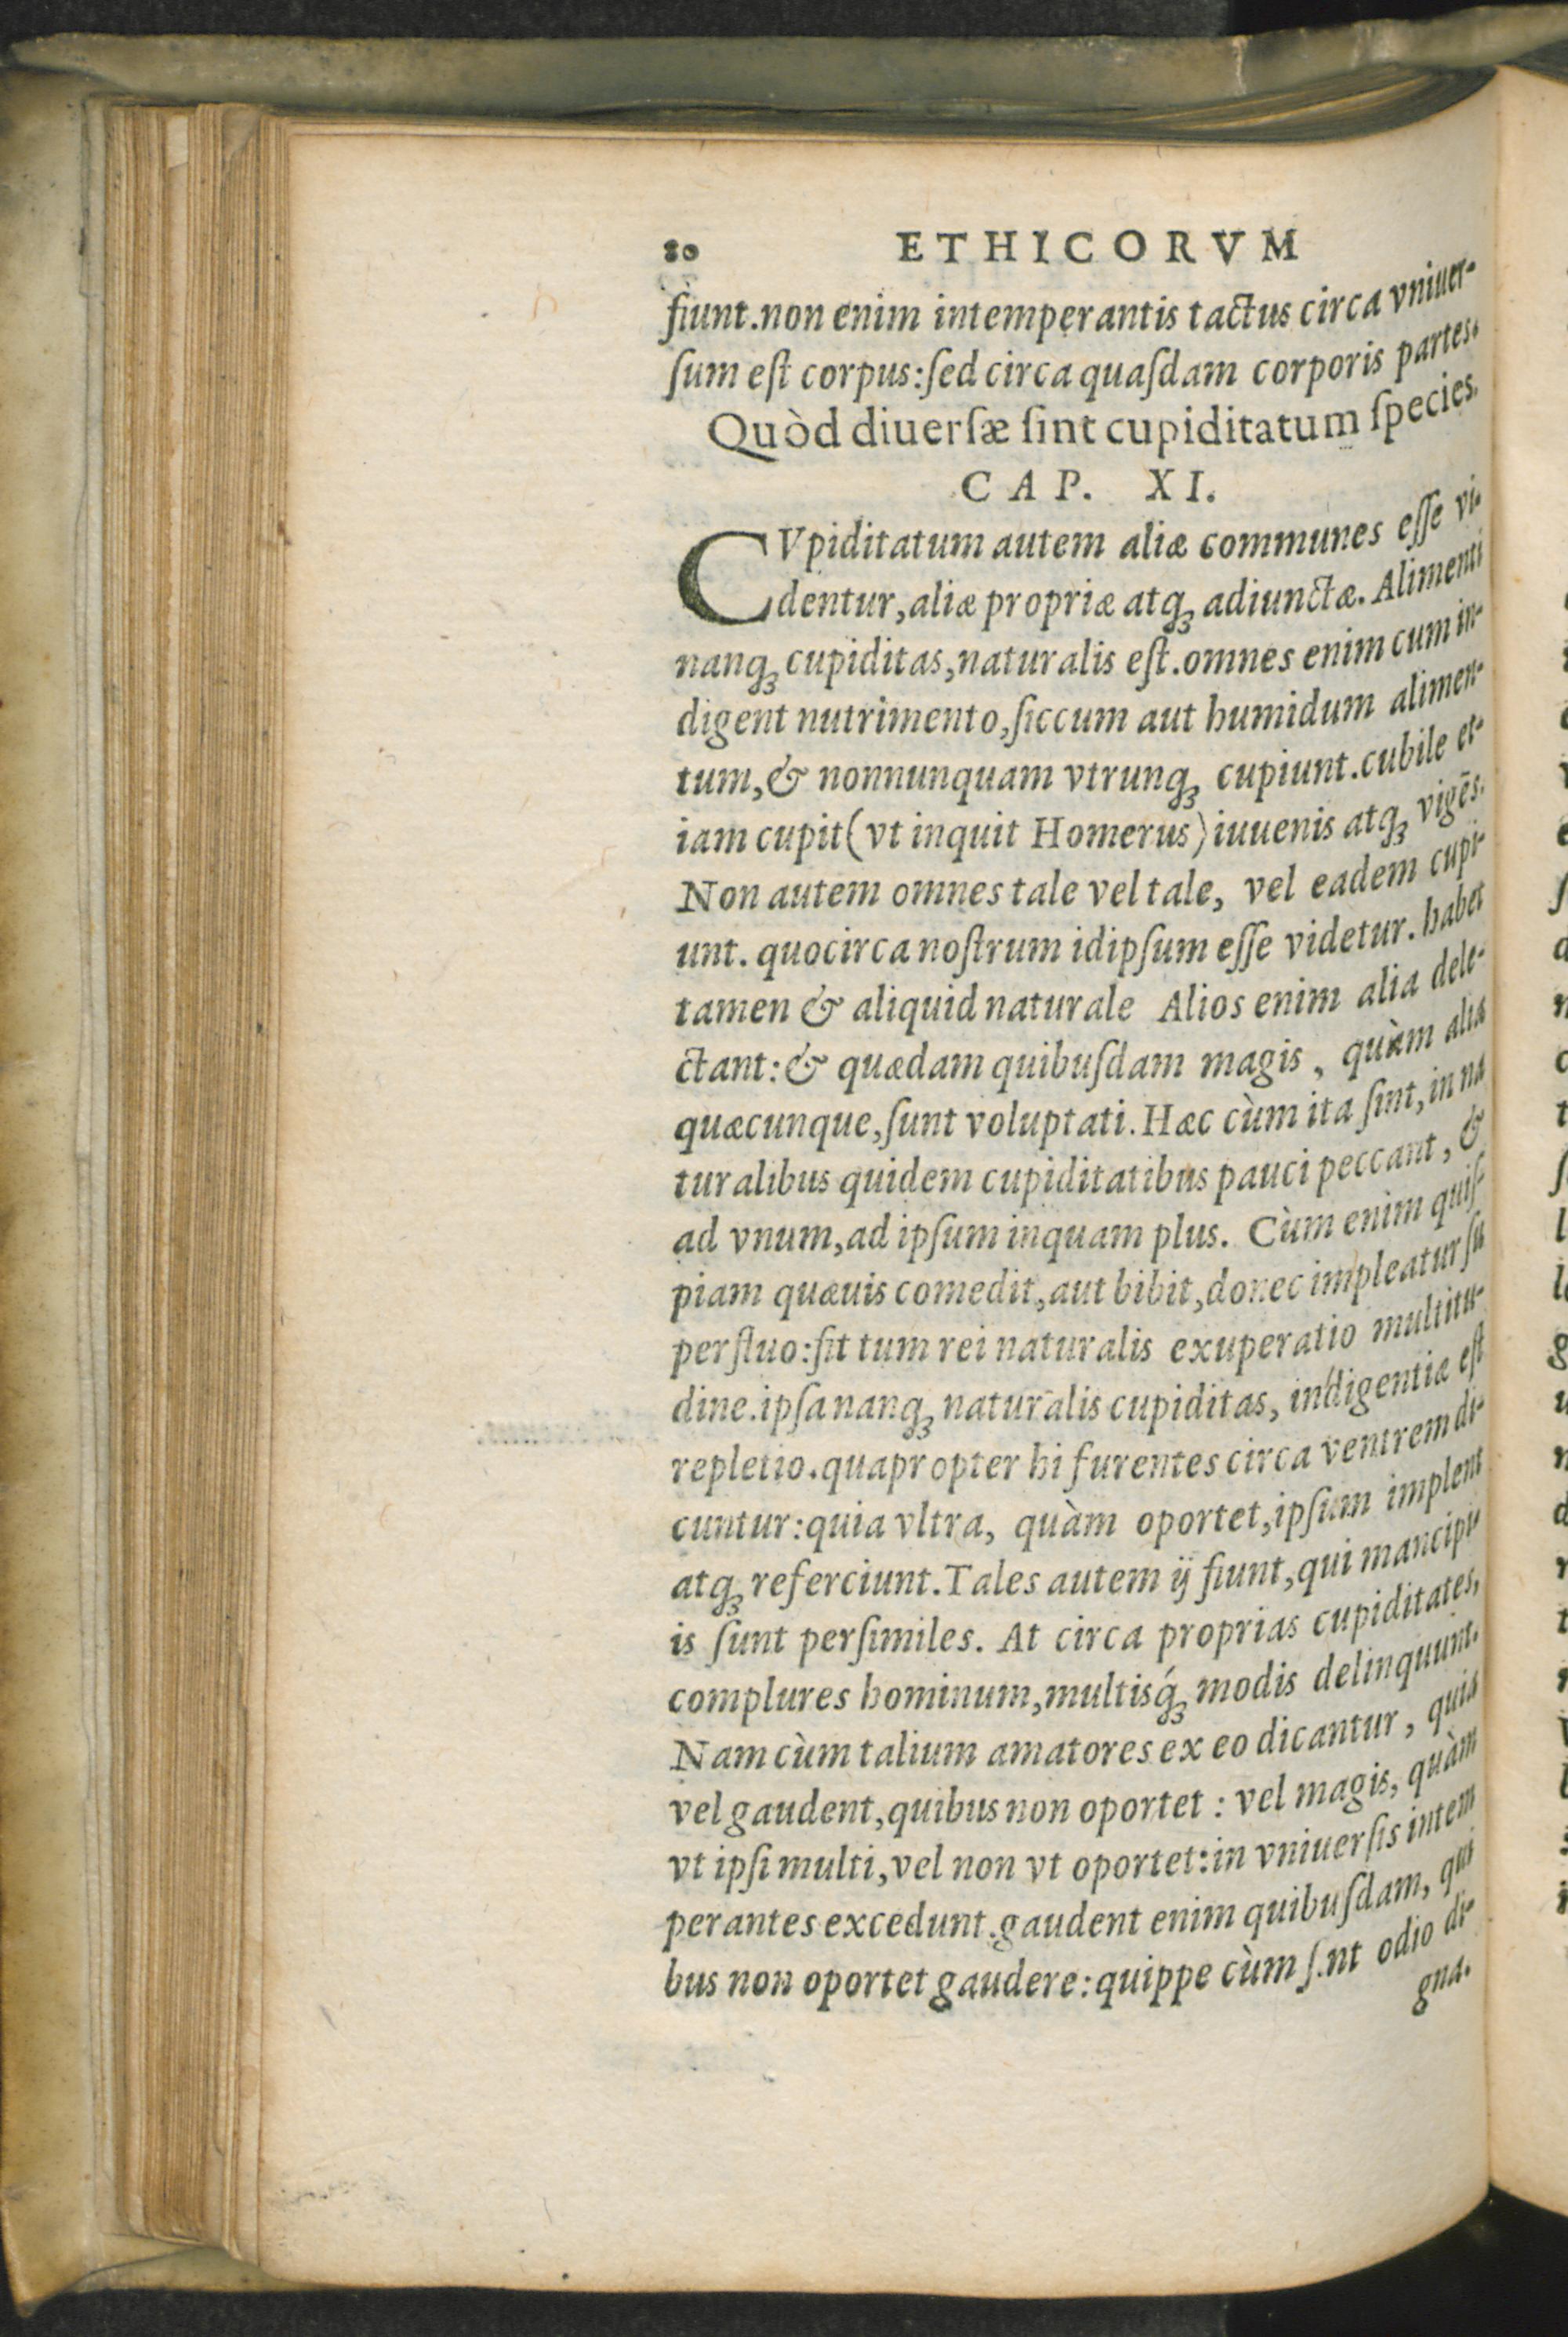 80 ETHICORVM
fiunt.non enim intemperantis tactus circa vniuer-
ſum eſt corpus:ſed circa quaſdam corporis partes.
Quòd diuerſæ ſint cupiditatum ſpecies.
CAP. XI.
CVpiditatum autem aliæ communes eſſe vi-
dentur,aliæ propriæ atqꝫ adiunctæ. Alimenti
nanqꝫ cupiditas,naturalis eſt.omnes enim cum in-
digent nutrimento,ſiccum aut humidum alimen-
tum,& nonnunquam vtrunqꝫ cupiunt.cubile et-
iam cupit(vt inquit Homerus)iuuenis atqꝫ vigēs.
Non autem omnes tale vel tale, vel eadem cupi-
unt. quocirca noſtrum idipſum eſſe videtur. habet
tamen & aliquid naturale Alios enim alia dele-
ctant:& quædam quibuſdam magis, quàm alia
quæcunque,ſunt voluptati. Hæc cùm ita ſint, in na
turalibus quidem cupiditatibus pauci peccant, &
ad vnum,ad ipſum inquam plus. Cùm enim quiſ-
piam quæuis comedit,aut bibit,donec impleatur ſu
perfluo:fit tum rei naturalis exuperatio multitu-
dine.ipſa nanqꝫ naturalis cupiditas, indigentiæ eſt
repletio.quapropter hi furentes circa ventrem di-
cuntur:quia vltra, quàm oportet,ipſum implent
atqꝫ referciunt.Tales autem ij fiunt,qui mancipi
is ſunt perſimiles. At circa proprias cupiditates,
complures hominum,multisq́ꝫ modis delinquunt.
Nam cùm talium amatores ex eo dicantur, quia
vel gaudent,quibus non oportet : vel magis, quàm
vt ipſi multi,vel non vt oportet:in vniuerſis intem
perantes excedunt.gaudent enim quibuſdam, qui
bus non oportet gaudere:quippe cùm ſint odio di-
gna.